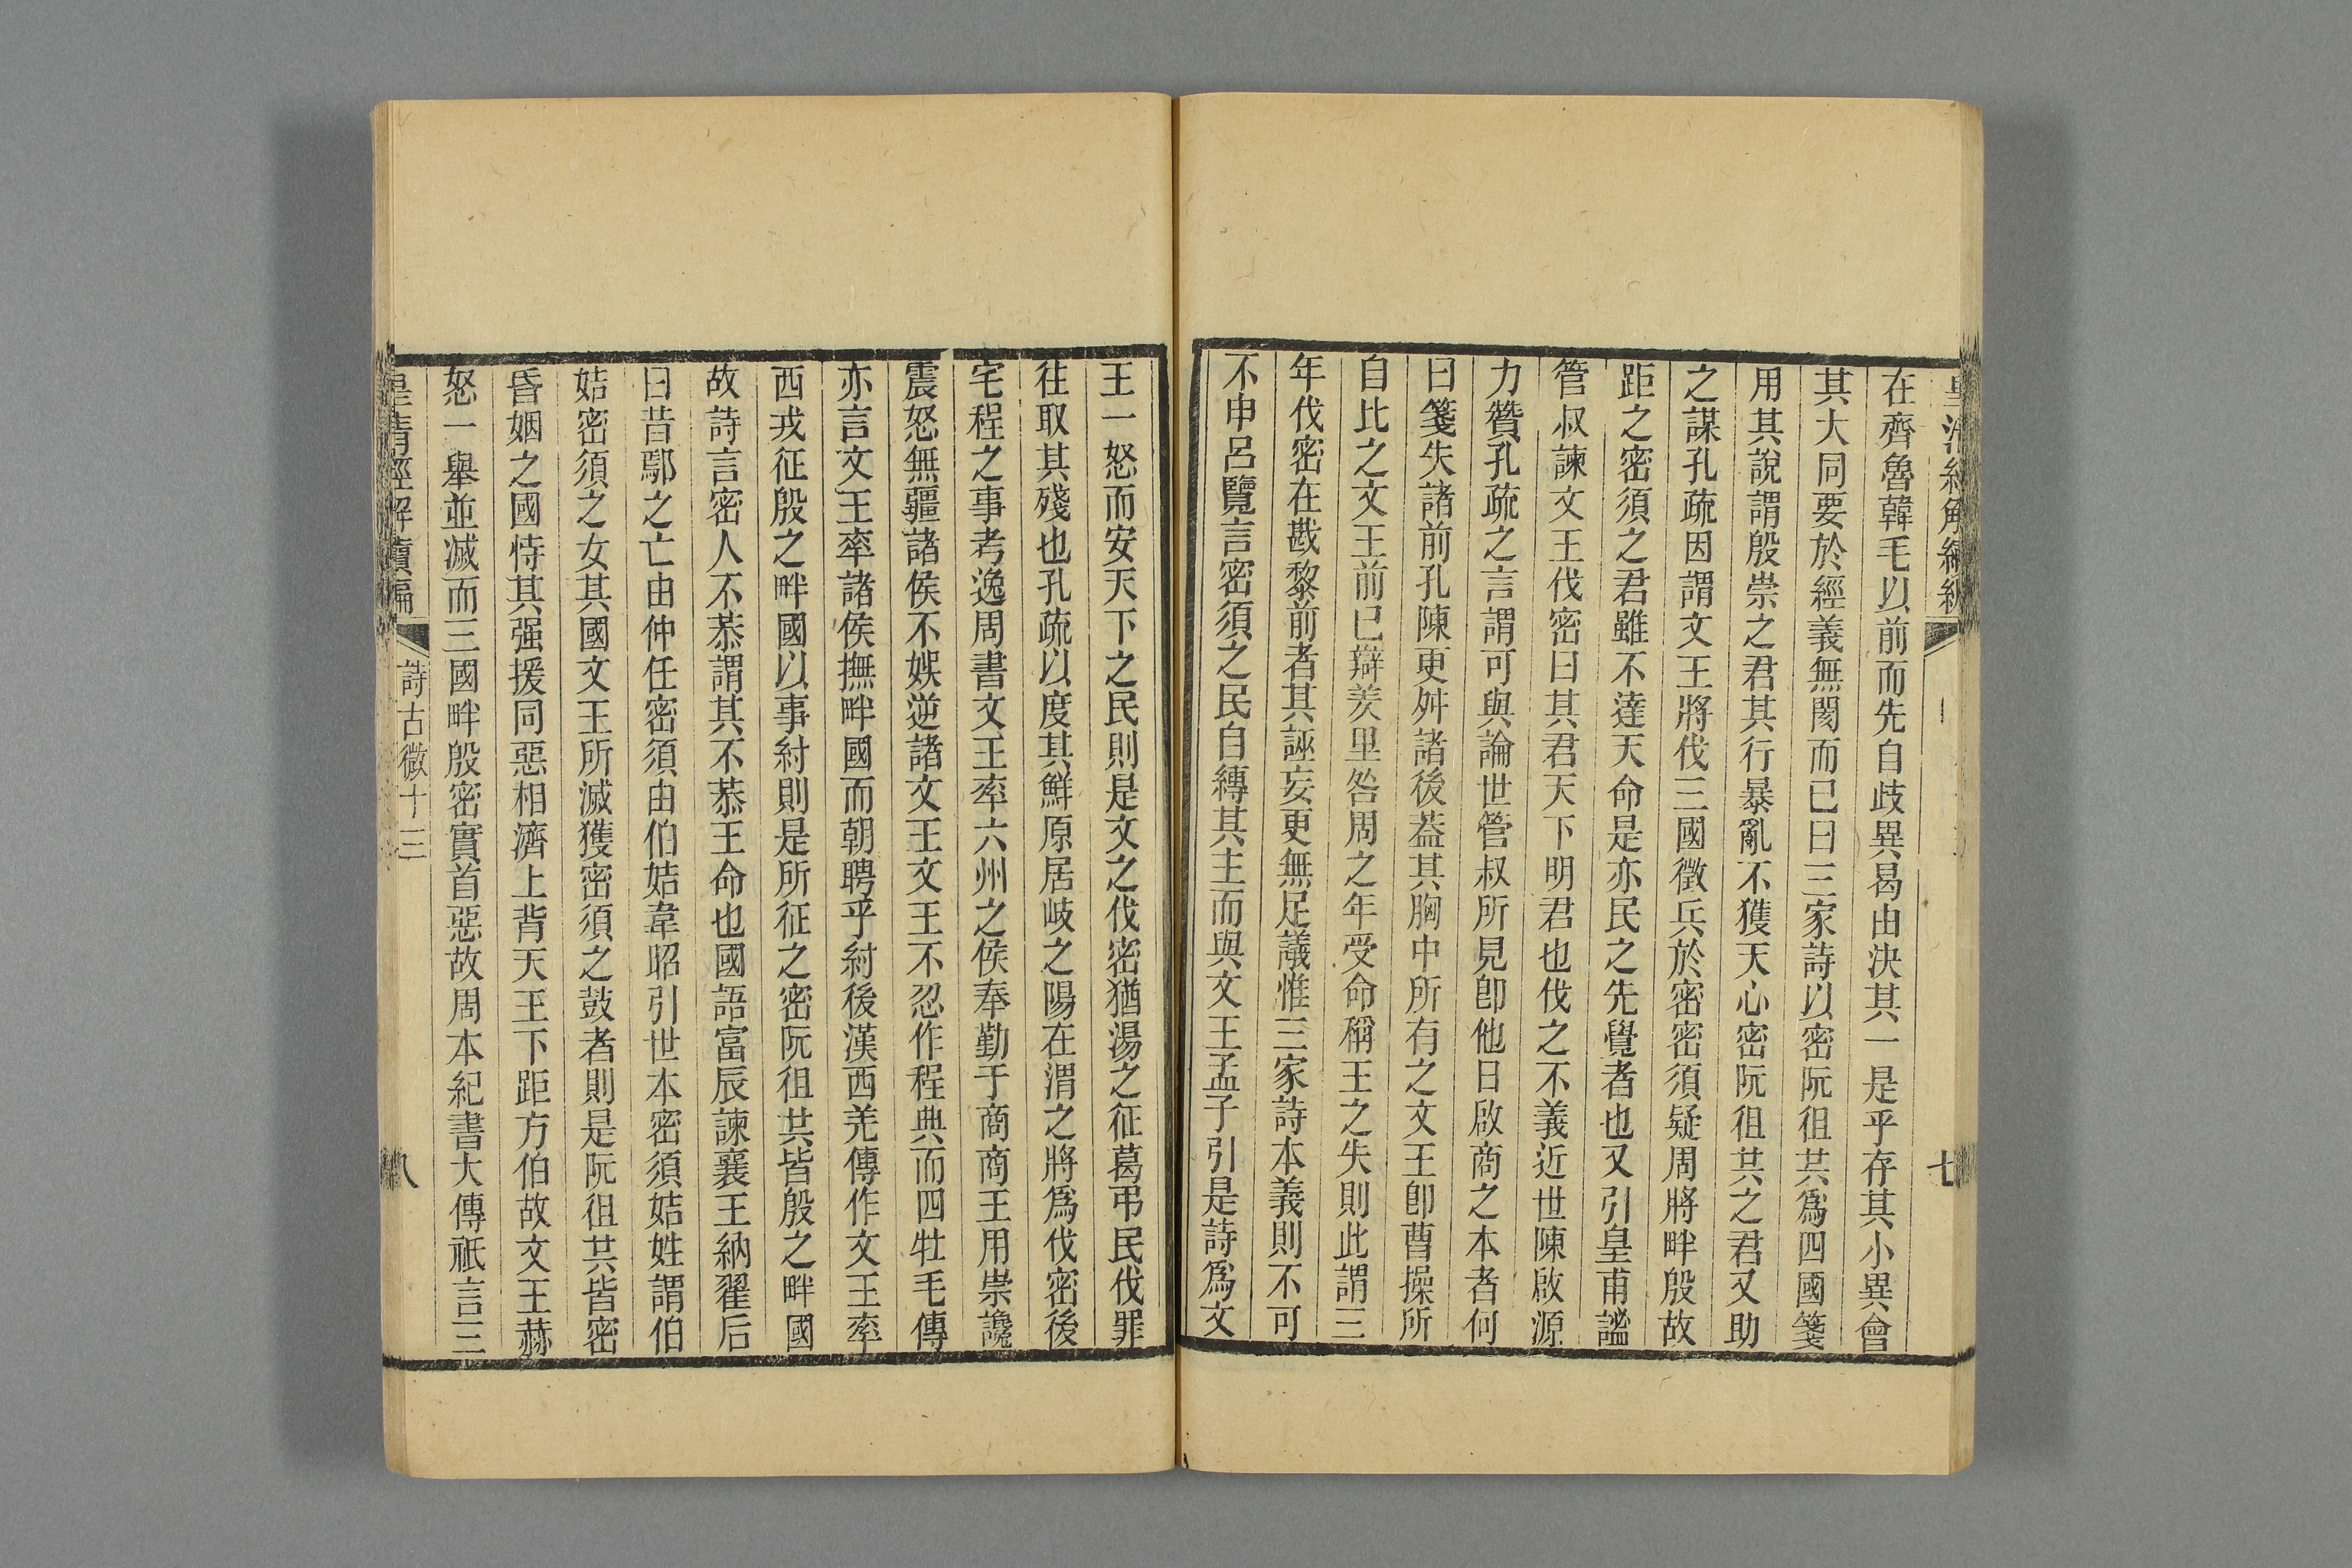 在齊魯韓毛以前而先自歧異曷由決其一是乎存其小異會
其大同要於經義無閡而已曰三家詩以密阮徂共爲四國箋
用其說謂殷崇之君其行暴亂不獲天心密阮徂共之君又助
之謀孔疏因謂文王將伐三國徵兵於密密須疑周將畔殷故
距之密須之君雖不達天命是亦民之先覺者也又引皇甫謐
管叔諫文王伐密曰其君天下明君也伐之不義近世陳啟源
力贊孔疏之言謂可與論世管叔所見卽他日啟商之本者何
曰箋失諸前孔陳更舛諸後葢其胸中所有之文王卽曹操所
自比之文王前已辯羑里咎周之年受命稱王之失則此謂三
年伐密在戡黎前者其誣妄更無足議惟三家詩本義則不可
不申呂覽言密須之民自縛其主而與文王孟子引是詩爲文
王一怒而安天下之民則是文之伐密猶湯之征葛弔民伐罪
往取其殘也孔疏以度其鮮原居岐之陽在渭之將爲伐密後
宅程之事考逸周書文王率六州之侯奉勤于商商王用崇讒
震怒無疆諸侯不娛逆諸文王文王不忍作程典而四牡毛傳
亦言文王率諸侯撫畔國而朝聘乎紂後漢西羌傳作文王率
西戎征殷之畔國以事紂則是所征之密阮徂共皆殷之畔國
故詩言密人不恭謂其不恭王命也國語富辰諫襄王納翟后
曰昔鄢之亡由仲任密須由伯姞韋昭引世本密須姞姓謂伯
姞密須之女其國文王所滅獲密須之鼓者則是阮徂共皆密
昏姻之國恃其强援同惡相濟上背天王下距方伯故文王赫
怒一舉並滅而三國畔殷密實首惡故周本紀書大傳祇言三
皇清經解續編
詩古微十三
八